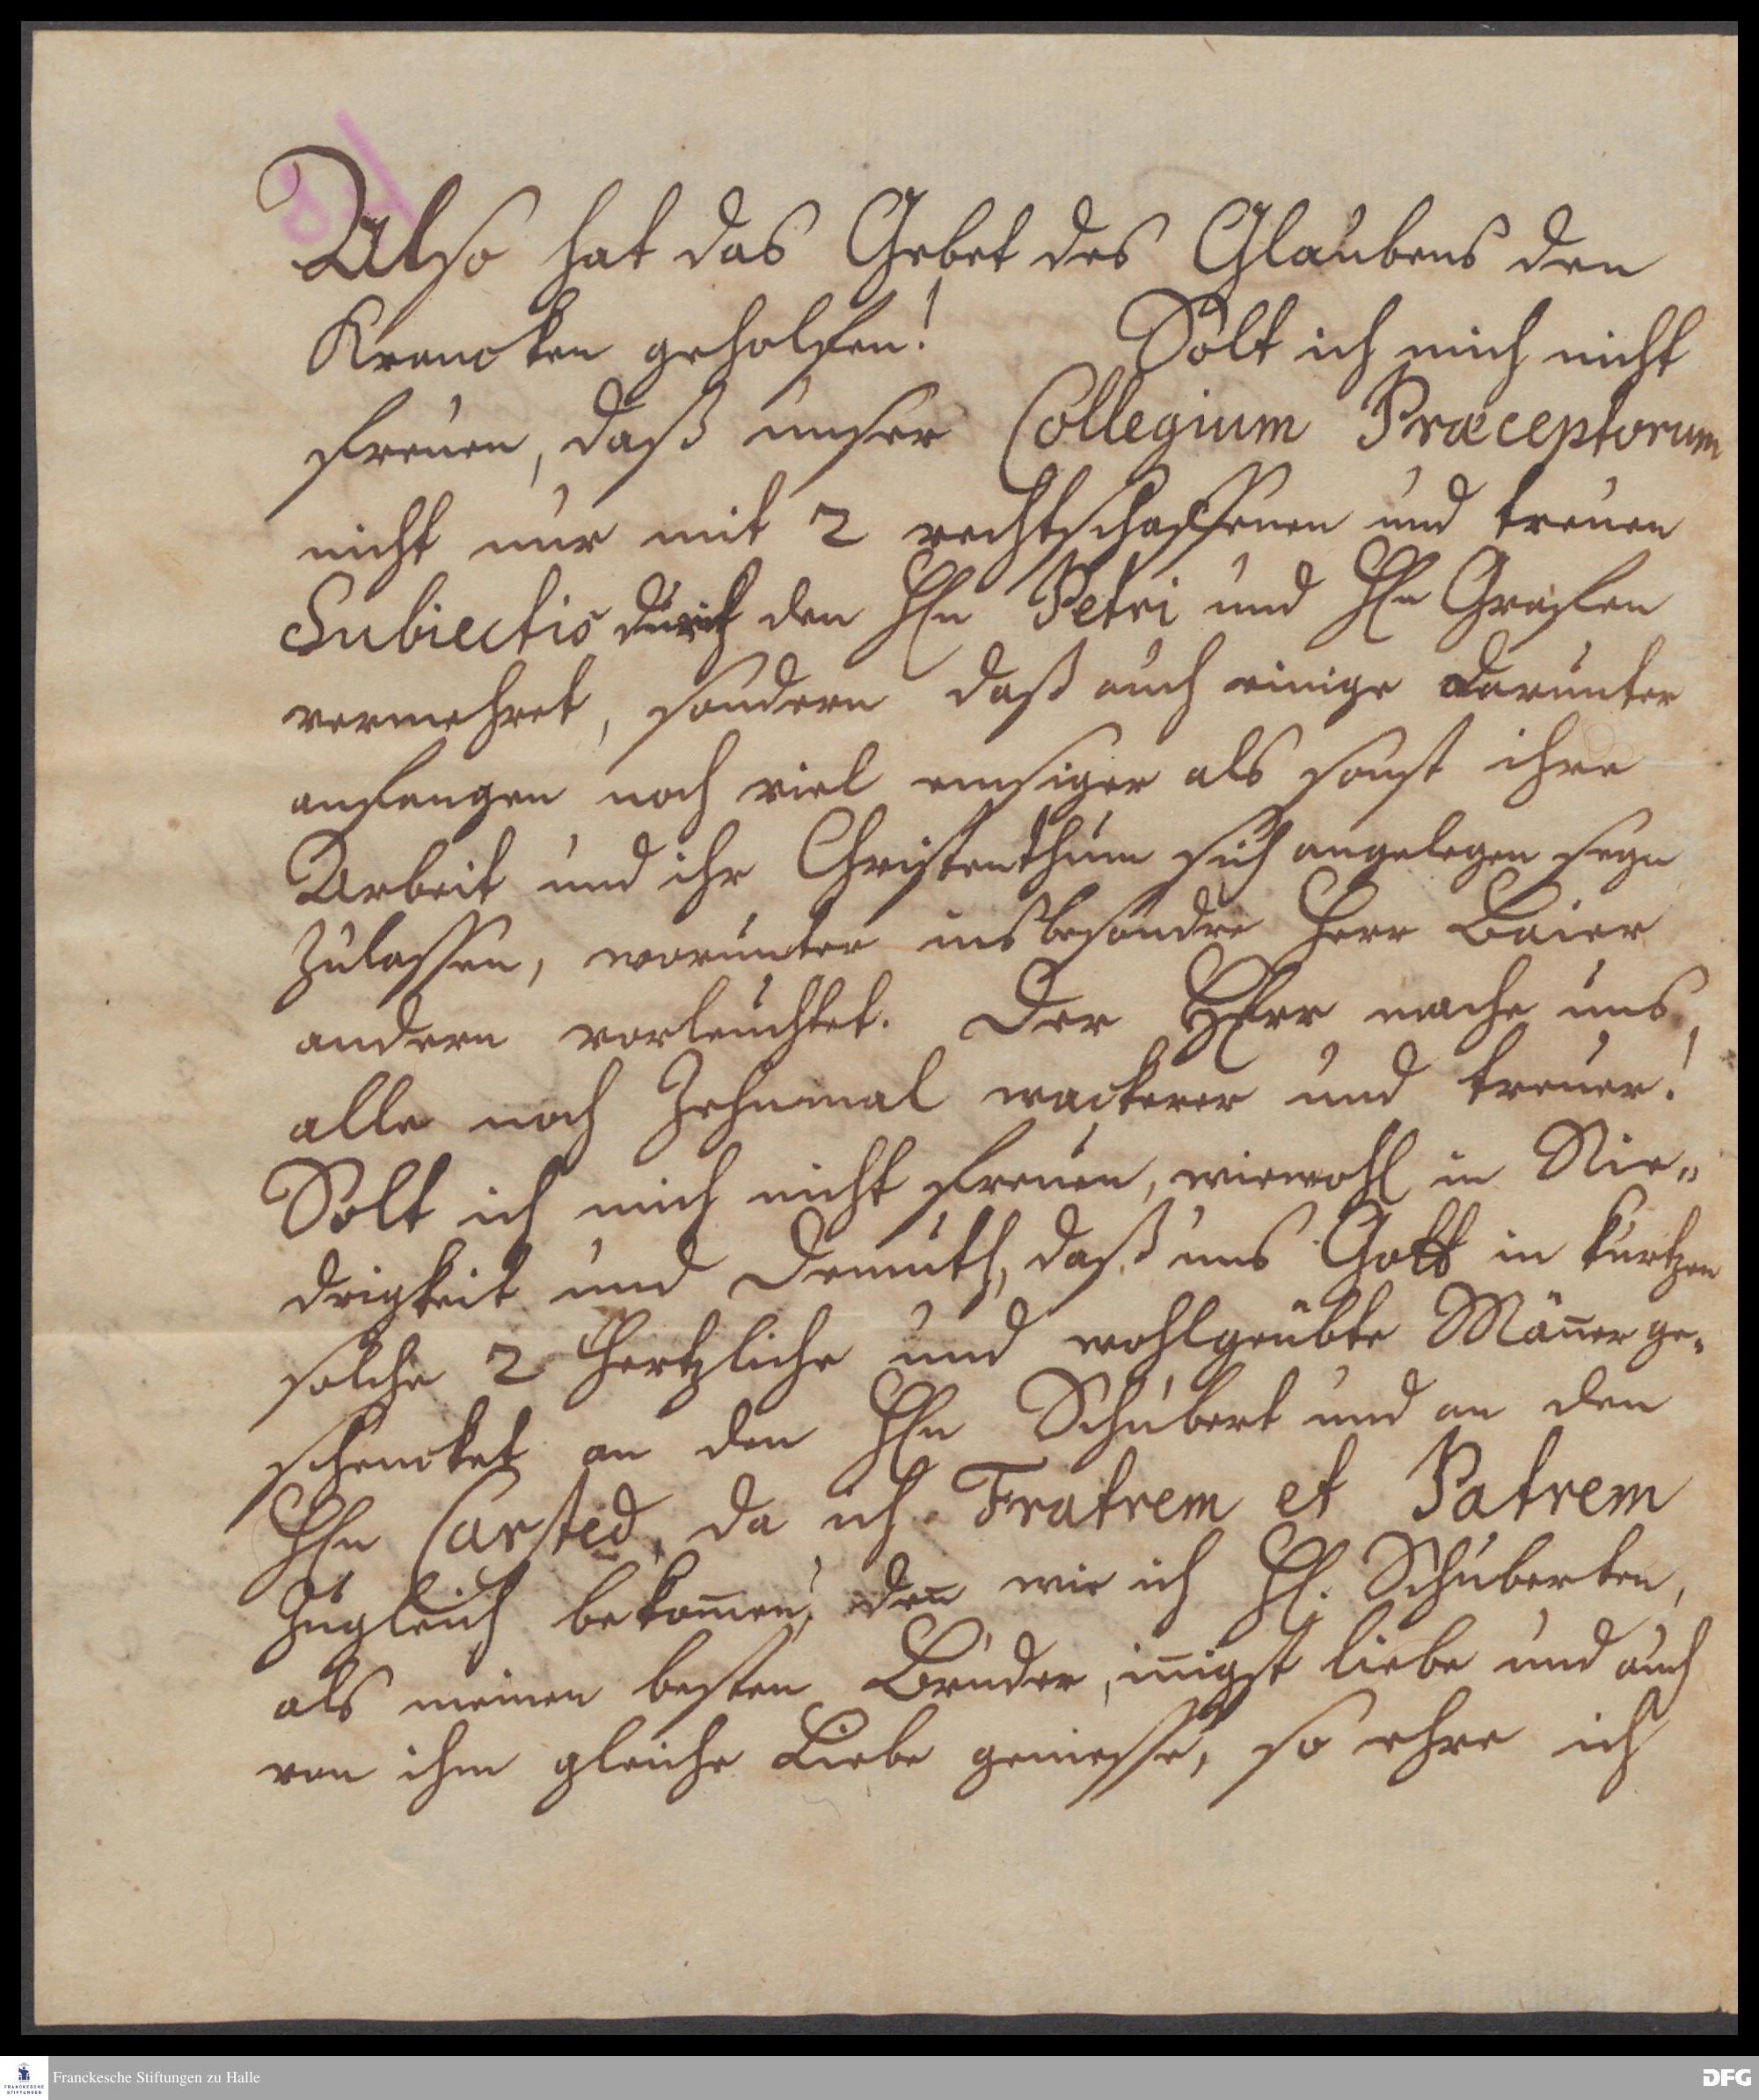 Also hat das Gebet des Glaubens den
Krancken geholfen! Solt ich mich nicht
freuen, daß unser Collegium Præceptorum
nicht nur mit 2 rechtschaffenen und treuen
Subiectis durch den HEn Petri und HEn Grafen
vermehret, sondern daß auch einige darunter
anfangen noch viel emsiger als sonst ihre
Arbeit und ihr Christenthum sich angelegen seyn
zulassen, worunter insbesondre Herr Baier
andern vorleuchtet. Der HErr mache uns
alle noch zehnmal wackerer und treuer!
Solt ich mich nicht freuen, wiewohl in Nie-
drigkeit und Demuth, daß uns Gott in kurtzen
solche 2 hertzliche und wohlgeübte Mäñer ge-
schencket an den HEn Schubert und an den
HEn Carsted, da ich Fratrem et Patrem
zugleich bekom̃en; deñ wie ich H. Schuberten,
als meinen besten Bruder, iñigst liebe und auch
von ihm gleiche Liebe geniesse, so ehre ich
Franckesche Stiftungen zu Halle
FRANCKESCHE
STIFTUNGEN
DFG